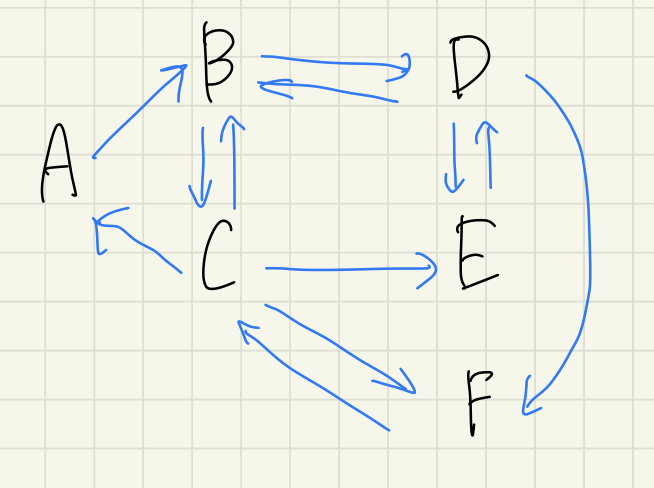 B D
A
C E
F